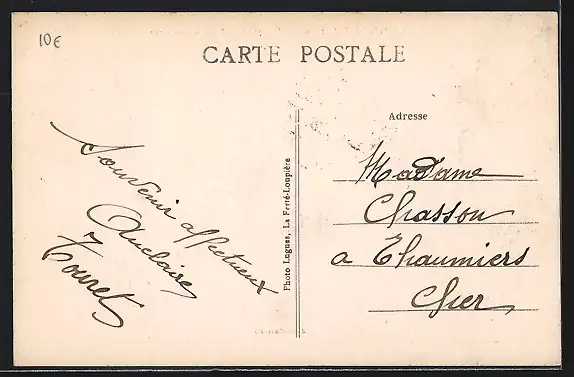 10€
CARTE POSTALE
Souvenir affectueux
Auclaire
Touret
Photo Lugues, La Ferté-Loupière
Adresse
Madame
Chasson
a Thaumiers
Cher